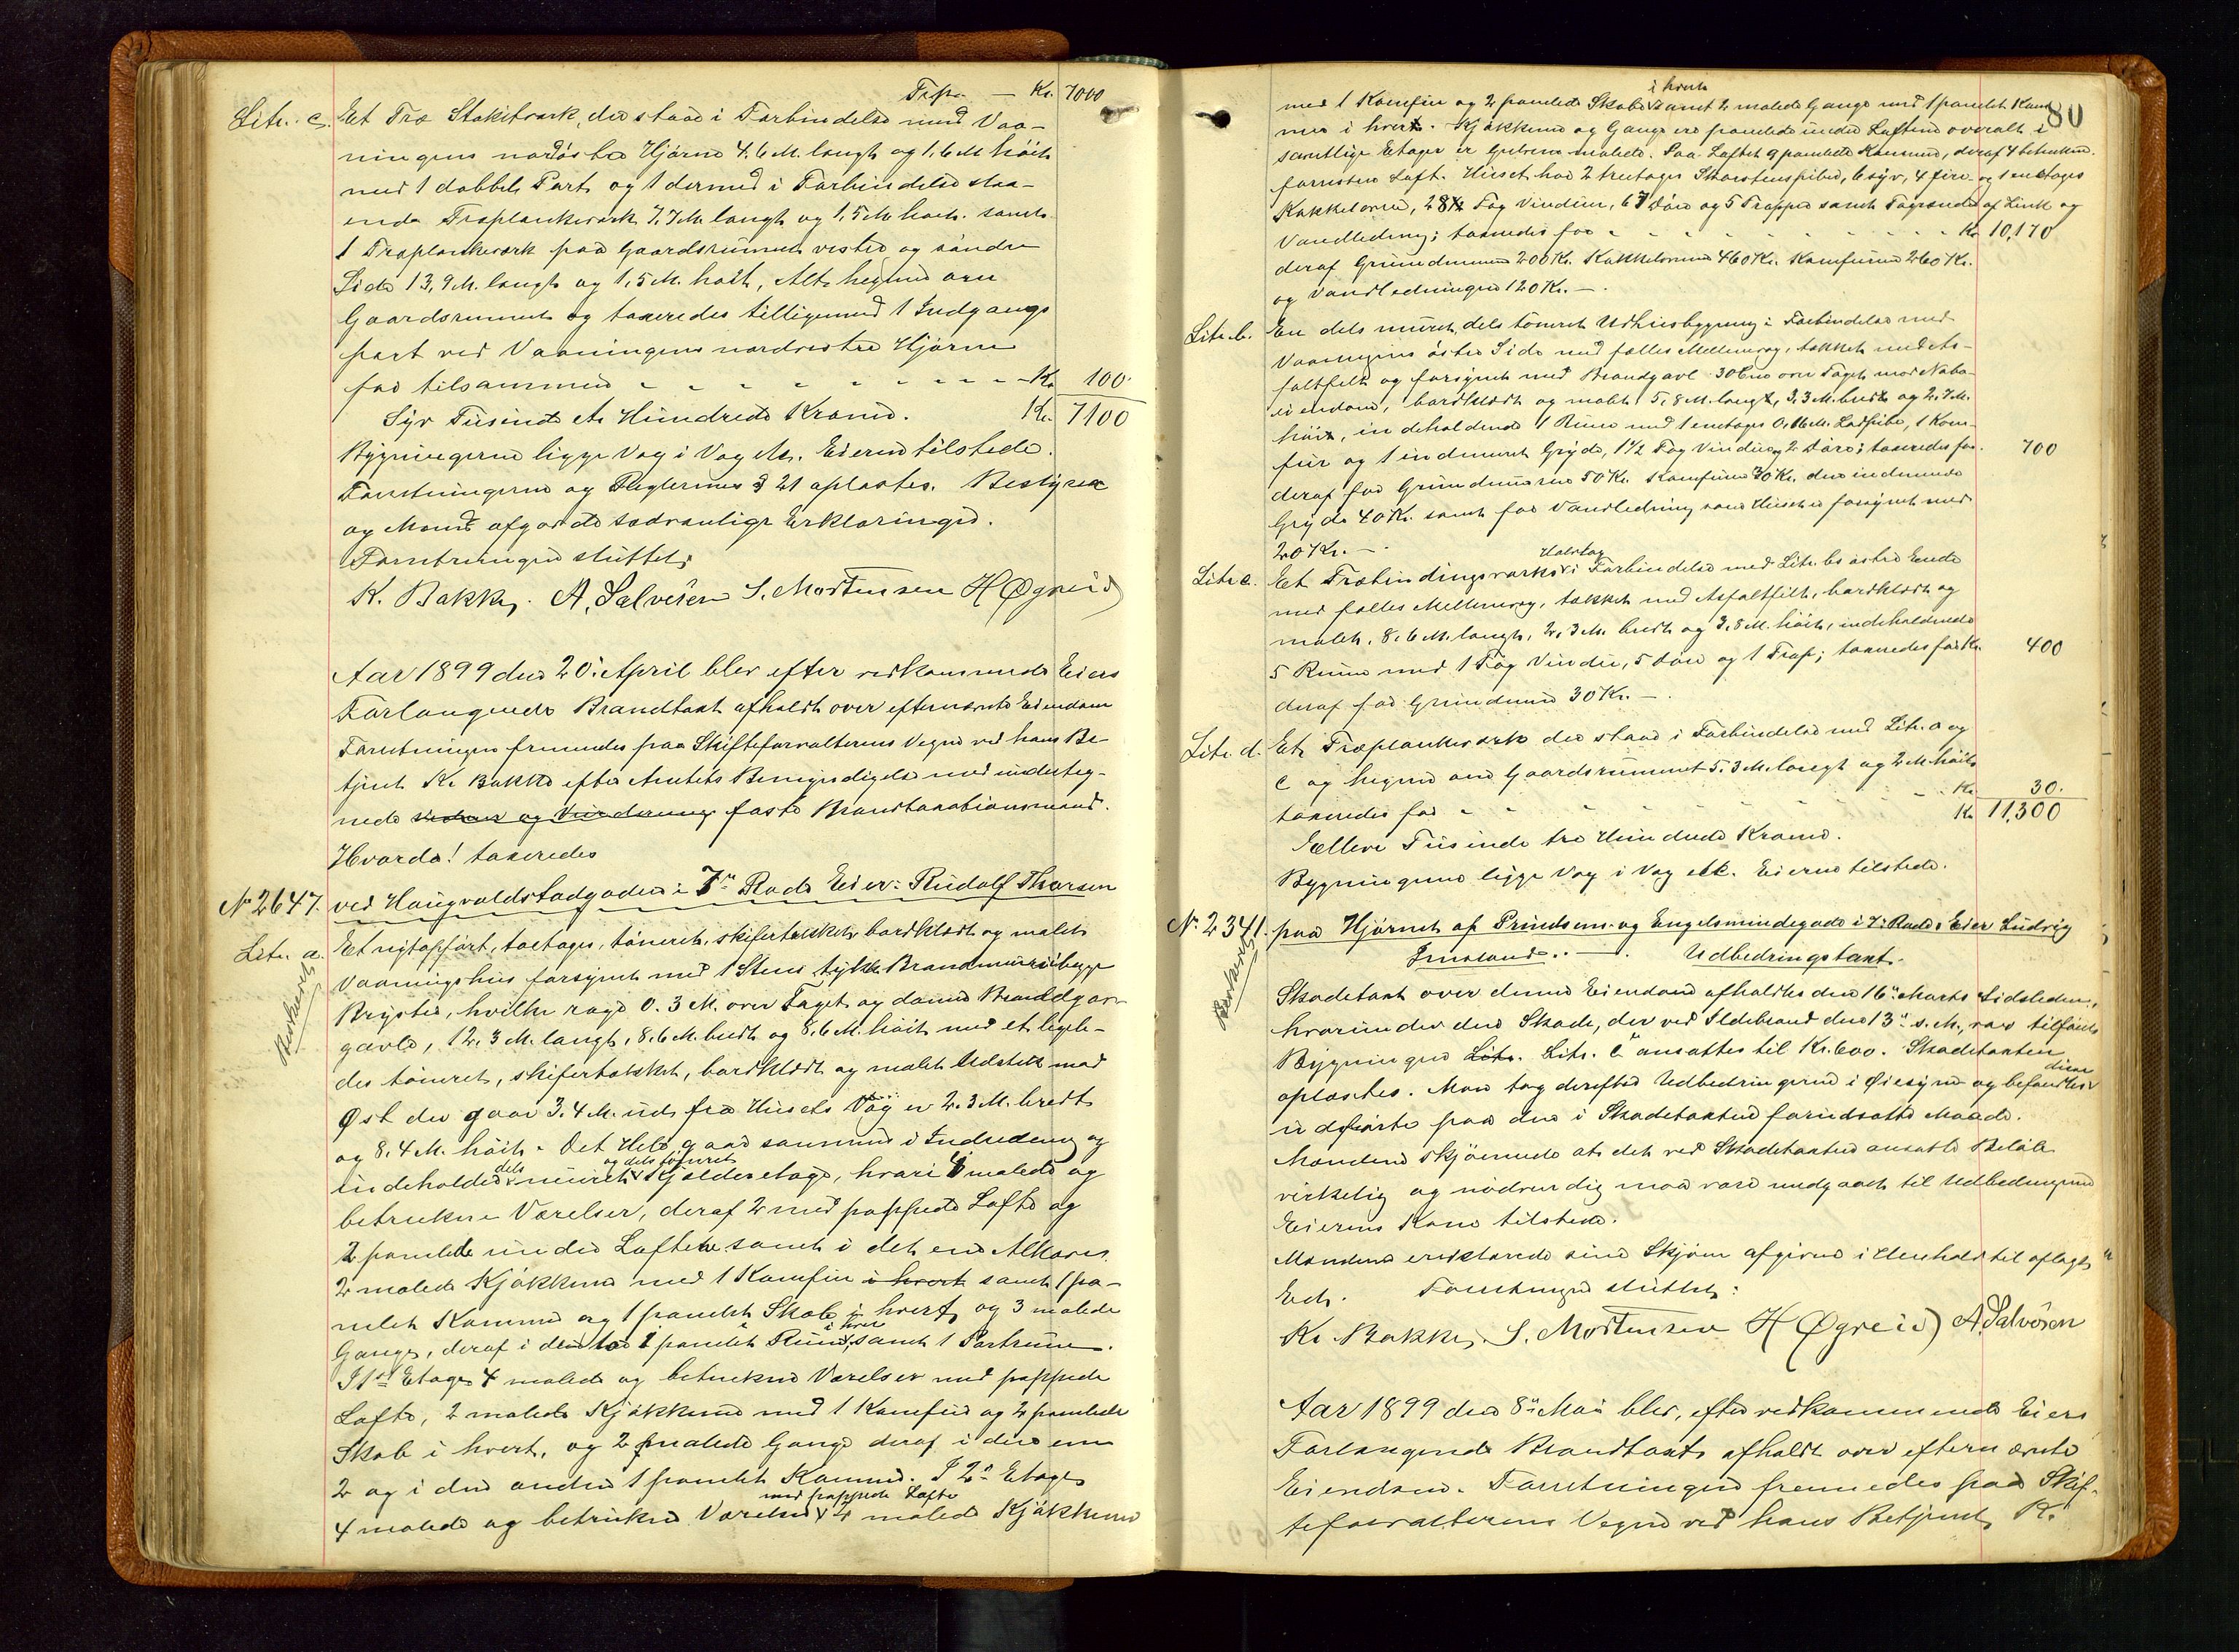 Trsp. — Kr. 7000
Litr. c. Et Træ Stakitværk, der staar i Forbindelse med Vaa-
ningens nordöstre Hjörne 4,6 M. langt og 1,6 M. höit
med 1 dobbelt Port og 1 dermed i Forbindelse staa-
ende Træplankeværk 7,7 M. langt og 1,5 M. höit. samt
1 Træplankeværk paa Gaardsrummets vestre og söndre
Side 13,9 M. langt og 1,5 M. höit, Alt hegner om
Gaardsrummet og taxeredes tilligemed 1 Indgangs
port ved Vaaningens nordvestre Hjörne
for tilsammen - - - - - - - - - Kr. 100.
Syv Tusinde et Hundrede Kroner. Kr. 7100
Bygningerne ligge Væg i Væg etc. Eieren tilstede.
Forretningerne og Reglernes § 21 oplæstes. Bestyrer
og Mænd afgav de sædvanlige Erklæringer.
Forretningen sluttet:
K. Bakke. A. Salvesen S. Mortensen H Øgreid
Aar 1899 den 20. April blev efter vedkommende Eiers
Forlangende Brandtaxt afholdt over efternævnte Eiendom
Forretningen fremmedes paa Skifteforvalterens Vegne ved hans Be-
tjent K. Bakke efter Amtets Bemyndigelse med underteg-
nede faste Brandtaxationsmænd.
Hvorda! taxeredes
No 2647. ved Haugvaldstadgaden i 7de Rode Eier: Rudolf Thorsen
Litr. a. Et nyt opført, toetages, tömret, skifertækket, bordklædt og malet
Bevkræft
Vaaningshus forsynet med 1 Stens tykke Brandmure i begge
Bryster, hvilke rage 0.3 M. over Taget og danne Brandgav-
gavle, 12,3 M. langt, 8,6 M. bredt og 8,6 M. höit med et ligele-
des tömret, skifertækket, bordklædt og malet Udstik mod
Øst der gaar 3.4 M. ud fra Husets Væg er 2.3 M. bredt
og 8,4 M. höit. Det Hele gaar sammen i Indredning og
dels og dels tömret
indeholder muret Kjælderetage, hvori 4 malede og
betrukne Værelser, deraf 2 med pappede Lofte og
2 panelede under Loftene samt i det ene Alkove,
2 malede Kjökkener med 1 Komfur i hvert samt 1 pa-
nelet Kammer og 1 panelet Skab i hvert, og 3 malede
i hver
Gange, deraf i den to 1 panelet Rum samt 1 Portrum.
I 1ste Etage 4 malede og betrukne Værelser med pappede
Lofte, 2 malede Kjökkener med 1 Komfur og 2 panelede
Skab i hvert, og 2 malede Gange deraf i den ene
2 og i den anden 1 panelet Kammer. I 2den Etage
med pappede Lofte
4 malede og betrukne Værelser 2 malede Kjökkener
80
i hvert
med 1 Komfur og 2 panelede Skabe samt 2 malede Gange med 1 panelet Kam-
mer i hver. Kjökkener og Gange ere panelede under Loftene overalt i
samtlige Etager er Gulvene malede. Paa Loftet 9 panelede Kammer, deraf 4 betrukne.
forresten Loft. Huset har 2 treetages Skorstenspiber, 6 syv, 4 fire- og 1 enetages
Kakkelovne, 28 Fag Vinduer, 67 Döre og 5 Trapper samt Tagrender af Zink og
Vandledning; taxeredes for - - - - - - - Kr 10,170
deraf Grundmuren 200 Kr. Kakkelovnene 460 Kr. Komfurene 260 Kr.
og Vandledningen 120 Kr. —
Litr. b. En dels muret, dels tömret Udhusbygning i Forbindelse med
Vaaningens östre Side med fælles Mellemvæg, tækket med As-
faltfilt og forsynet med Brandgavl 30 Cm over Taget mod Nabo-
eiendom, bordklædt og malet 5,8 M. langt, 3,3 M. bredt og 2,7 M.
höit, indeholdende 1 Rum med 1 enetages 0,16 M. Lodpibe, 1 Kom-
fur og 1 indmuret Gryde, 1½ Fag Vinduer, 2 Döre; taxeredes for 700
deraf for Grundmuren 50 Kr. Komfuren 30 Kr. den indmurede
Gryde 40 Kr. samt for Vandledning som Huset er forsynet med
20 Kr. —
Halvtag
Litr c. Et Træbindingsværks i Forbindelse med Litr. bs östre Ende
med fælles Mellemvæg, tækket med Asfaltfilt, bordklædt og
malet, 8,6 M. langt, 2,3 M. bredt og 3,8 M. höit, indeholdende
5 Rum med 1 Fag Vindu, 5 Döre og 1 Trap; taxeredes for Kr. 400
deraf for Grundmur 30 Kr. —
Litr. d. Et Træplankeværk der staar i Forbindelse med Litr. a og
c og hegner om Gaardsrummet 5.3 M. langt og 2 M. höit
taxeredes for - - - - - Kr. 30.
Kr. 11,300
Elleve Tusinde tre Hundrede Kroner.
Bygningerne ligge Væg i Væg etc. Eieren tilstede.
No. 2341. paa Hjörnet af Prindsens og Engelsmindegade i 7. Rode, Eier Ludvig
Bevkræft
Imsland. — Udbedringstaxt.
Skadetaxt over denne Eiendom afholdtes den 16de Marts sidstleden,
hvorunder den Skade, der ved Ildebrand den 13de s. M. var tilföiet
Bygningen Litr. Litr. c ansattes til Kr. 600. Skadetaxten
disse
oplæstes. Man tog derefter Udbedringerne i Øiesyn og befandtes
udförte paa den i Skadetaxten forudsatte Maade.
Mændene skjönnede at det ved Skadetaxten ansatte Belöb
virkelig og nödvendig maa være medgaaet til Udbedringerne
Eierens Kone tilstede.
Mændene erklærede sine Skjön afgivne i Henhold til aflagt
Eed. Forretningen sluttet:
Kr. Bakke. S. Mortensen H Øgreid A. Salvesen
Aar 1899 den 8de Mai blev, efter vedkommende Eiers
Forlangende Brandtaxt afholdt over efternævnte
Eiendom. Forretningen fremmedes paa Skif-
teforvalterens Vegne ved hans Betjent K.